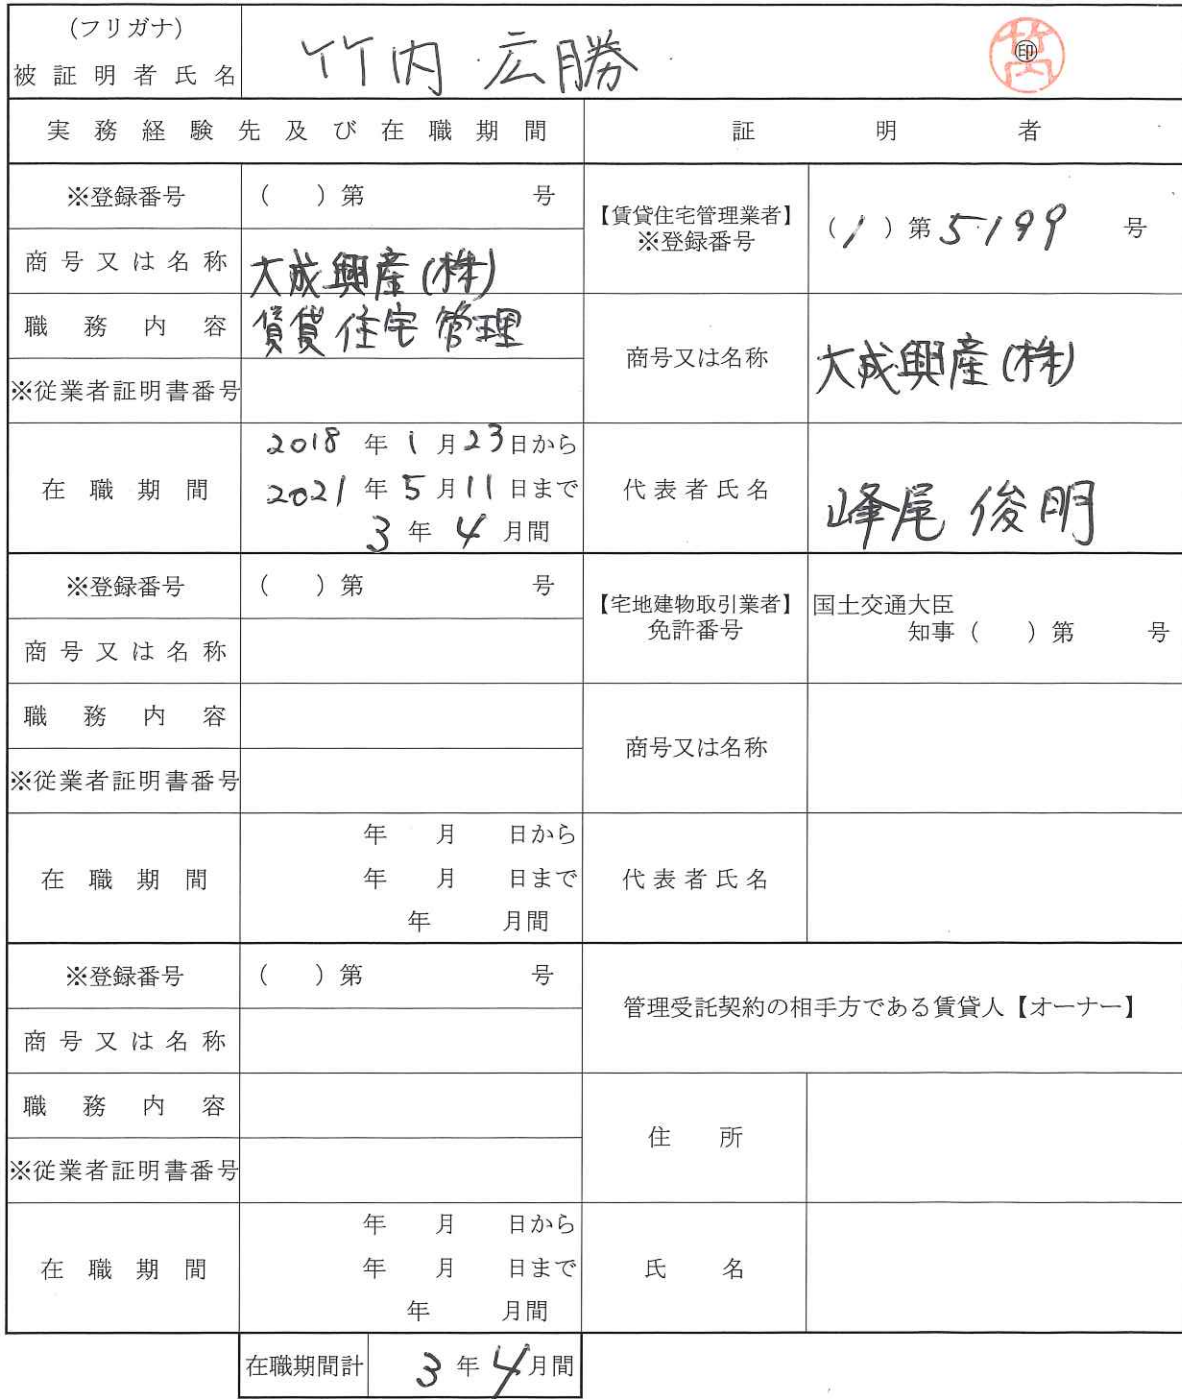 (フリガナ)
被証明者氏名 竹内 広勝 ㊞ 竹内
実務経験先及び在職期間 証明者
※登録番号 ( ) 第 号
【賃貸住宅管理業者】
※登録番号 (1) 第 5199 号
商号又は名称 大成興産(株)
職務内容 賃貸住宅管理
商号又は名称 大成興産(株)
※従業者証明書番号
在職期間
2018 年 1 月 23 日から
2021 年 5 月 11 日まで
3 年 4 月間
代表者氏名 峰尾 俊明
※登録番号 ( ) 第 号
【宅地建物取引業者】
免許番号
国土交通大臣
知事 ( ) 第 号
商号又は名称
職務内容
商号又は名称
※従業者証明書番号
在職期間
年 月 日から
年 月 日まで
年 月間
代表者氏名
※登録番号 ( ) 第 号
管理受託契約の相手方である賃貸人【オーナー】
商号又は名称
職務内容
住所
※従業者証明書番号
在職期間
年 月 日から
年 月 日まで
年 月間
氏名
在職期間計 3 年 4 月間